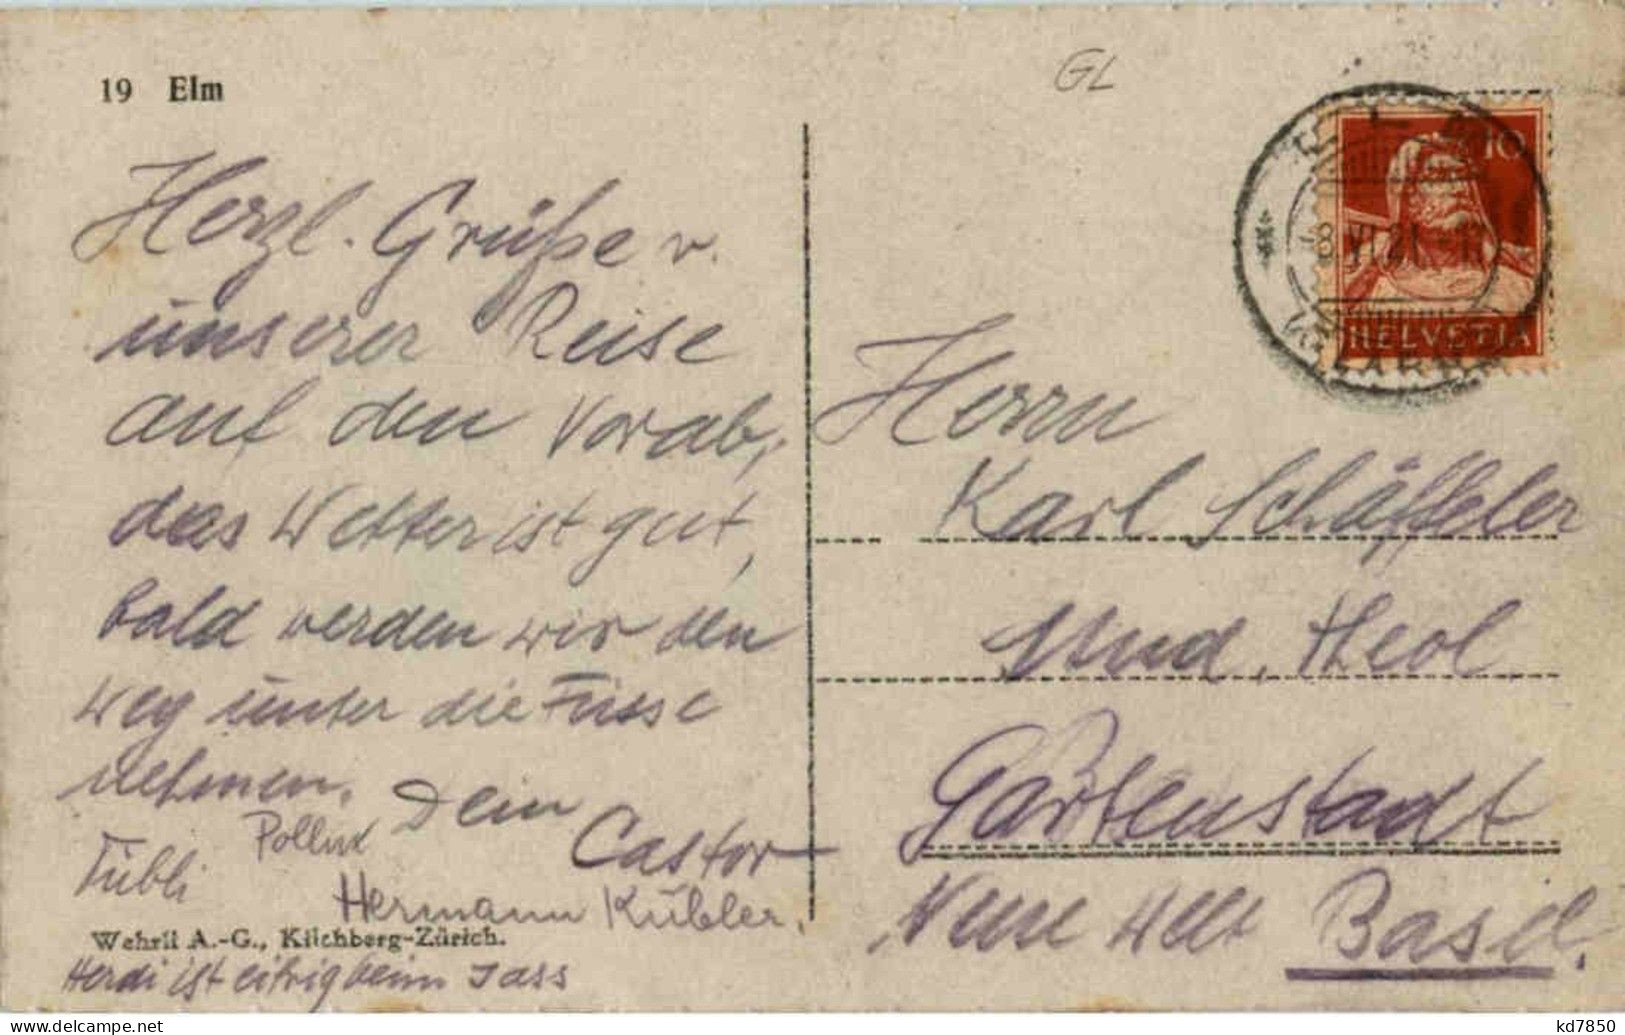 19 Elm
GL
Herzl. Grüße v.
unserer Reise
auf den Vorab,
das Wetter ist gut,
bald werden wir den
Weg unter die Füsse
nehmen. Dein
Pollux
Castor
Tübli
Hermann Kübler.
Wehrli A.-G., Kilchberg-Zürich.
Herdi ist eifrig beim Jass
10
8.VI.21
HELVETIA
Herrn
Karl Schäffeler
stud. theol
Gartenstadt
Neue Welt Basel.
kd7850